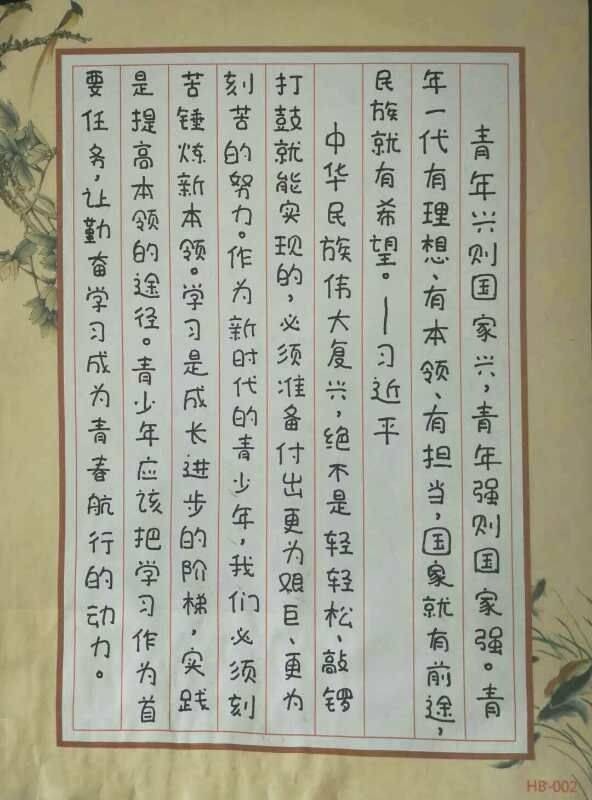 青年兴则国家兴，青年强则国家强。青
年一代有理想、有本领、有担当，国家就有前途，
民族就有希望。—习近平
中华民族伟大复兴，绝不是轻轻松、敲锣
打鼓就能实现的，必须准备付出更为艰巨、更为
刻苦的努力。作为新时代的青少年，我们必须刻
苦锤炼新本领。学习是成长进步的阶梯，实践
是提高本领的途径。青少年应该把学习作为首
要任务，让勤奋学习成为青春航行的动力。
HB-002